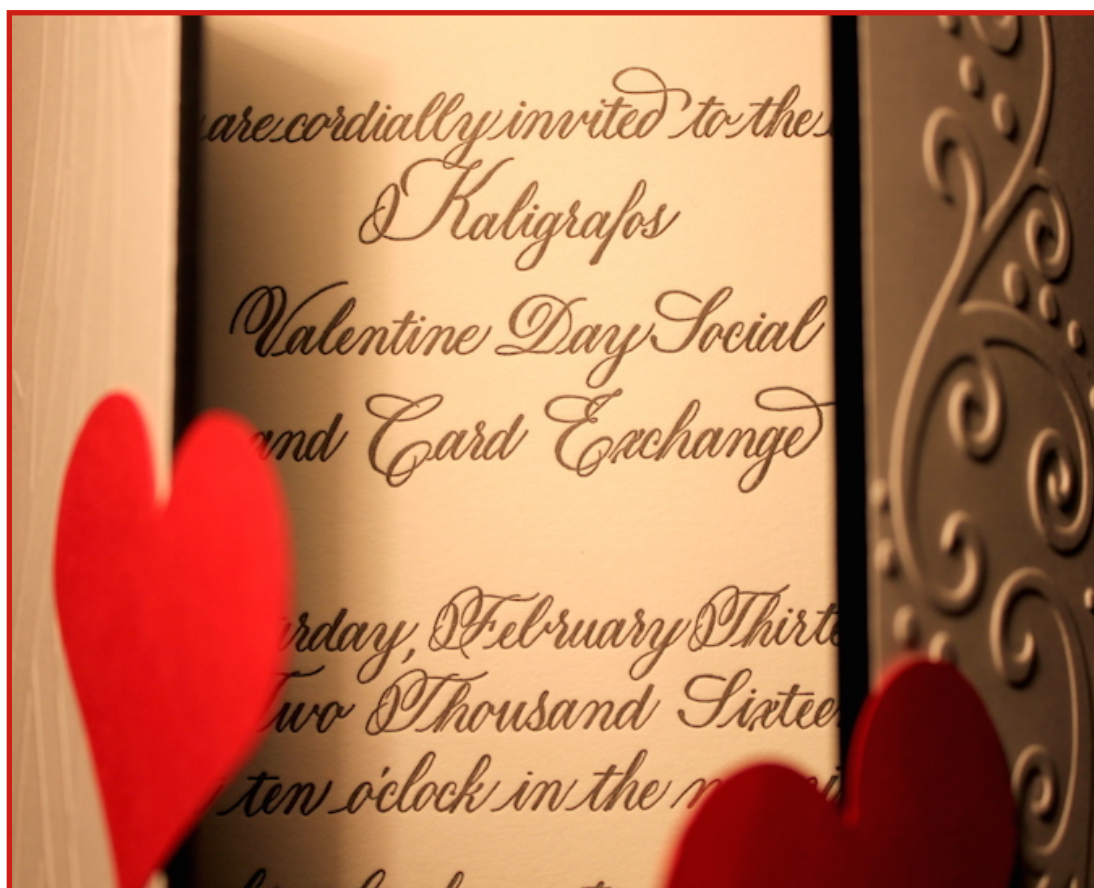 are cordially invited to the
Kaligrafos
Valentine Day Social
and Card Exchange
rday, February Thirte
Two Thousand Sixteen
ten o'clock in the